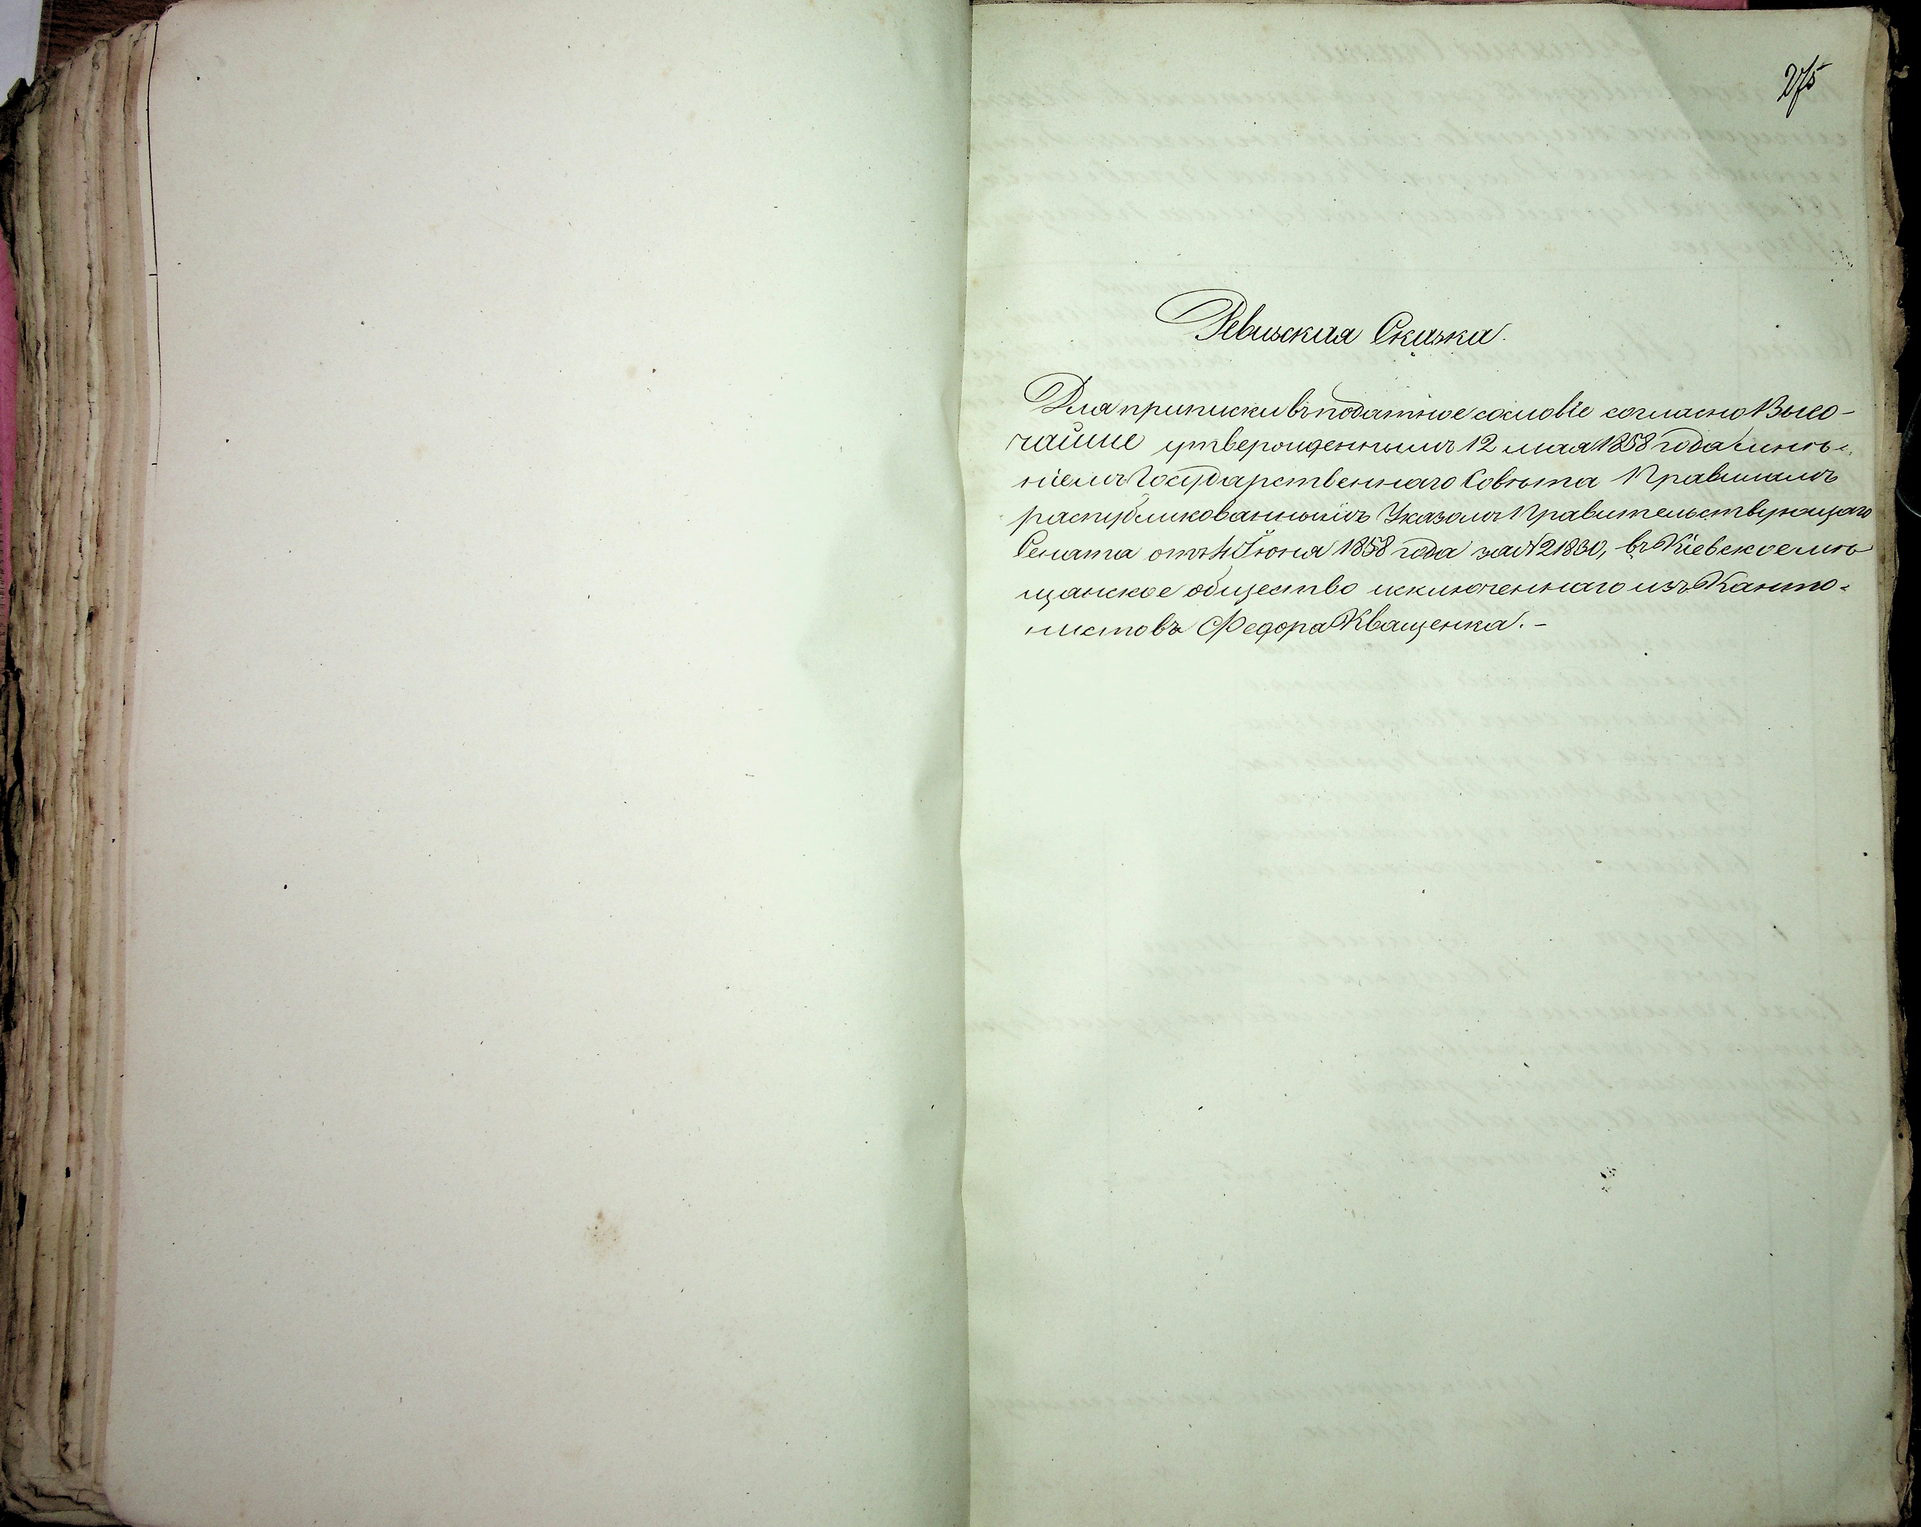 275
Ревизская Сказка.
Для приписки въ податное сословіе согласно Высо-
чайше утвержденнымъ 12 мая 1858 года мнѣ-
ніемъ Государственнаго Совѣта Правиламъ
распубликованнымъ Указомъ Правительствующаго
Сената отъ 4 Іюня 1858 года за № 21830, въ Кіевское мѣ
щанское общество исключеннаго изъ Канто-
нистовъ Федора Кващенка. -